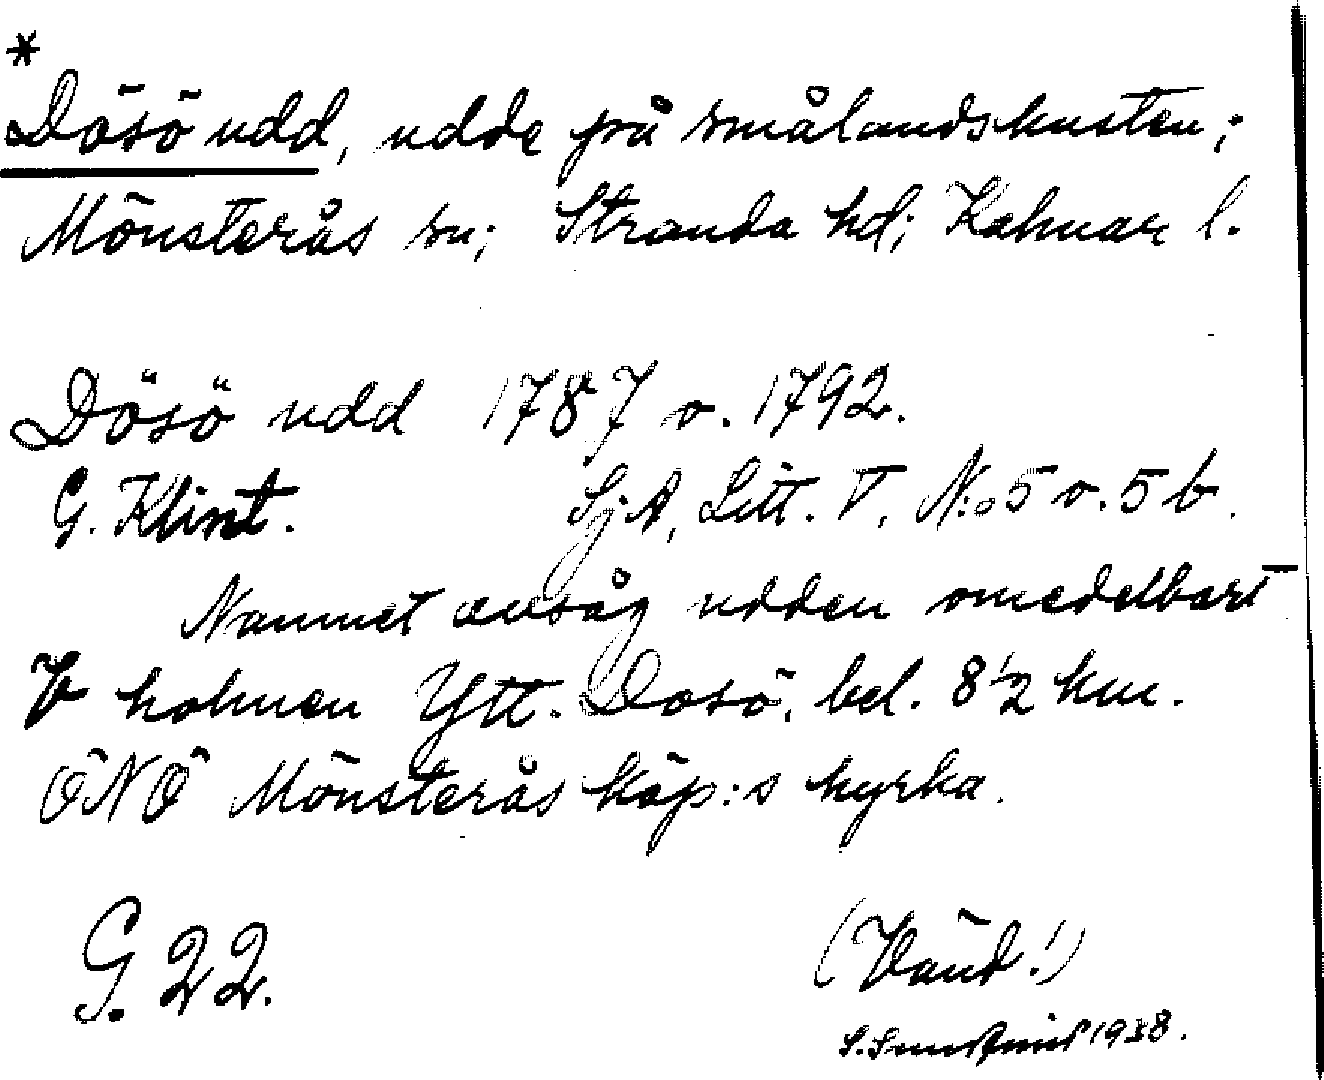 *
Dösö udd, udde på smålandskusten;
Mönsterås sn; Stranda hd; Kalmar l.
Dösö udd 1787 o. 1792.
G. Klint. Sj.A, Litt. V, N:o 5 o. 5 b.
Namnet avsåg udden omedelbart
V holmen Ytt. Dösö, bel. 8 1/2 km.
ÖNÖ Mönsterås köp:s kyrka.
G. 22. (Vänd!)
1938.